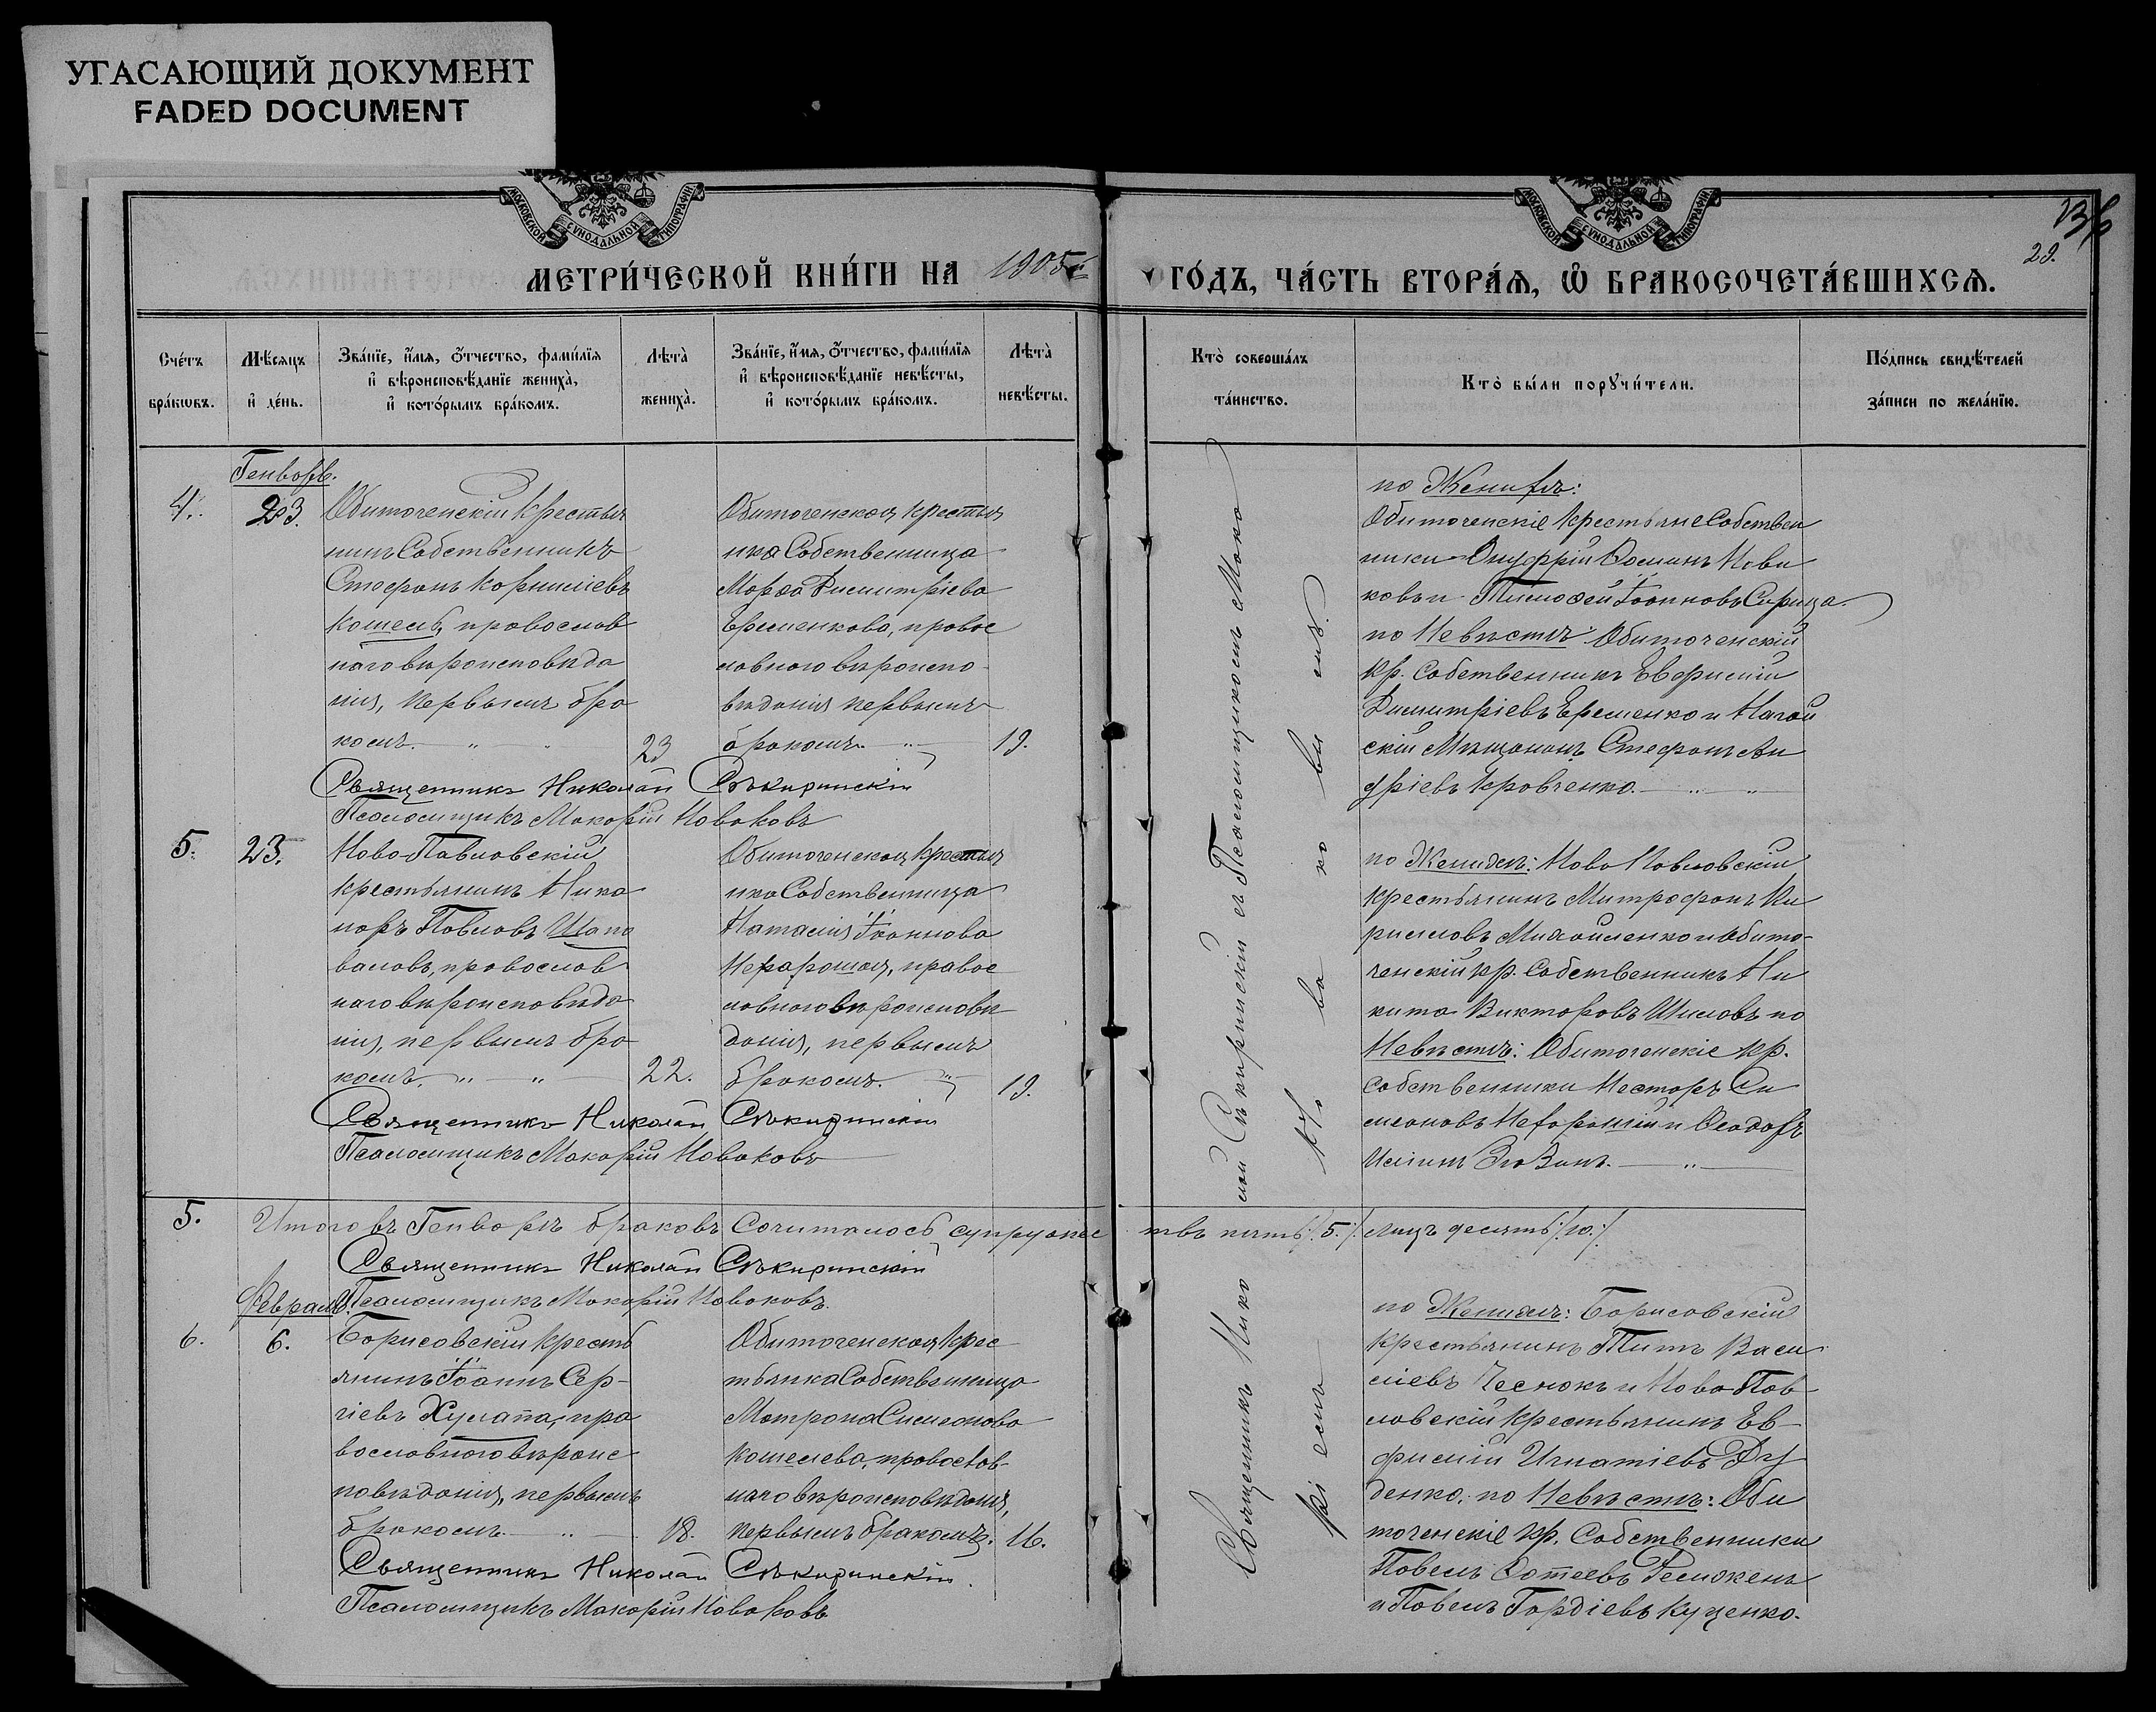 УГАСАЮЩИЙ ДОКУМЕНТ
FADED DOCUMENT
МОСКОВСКОЙ СѴНОДАЛЬНОЙ ТИПОГРАФІИ
МОСКОВСКОЙ СѴНОДАЛЬНОЙ ТИПОГРАФІИ
29.
МЕТРИ́ЧЕСКОЙ КНИ́ГИ НА 1905 ГО́ДЪ, ЧА́СТЬ ВТОРА́Ѧ, Ѡ҆ БРАКОСОЧЕТА́ВШИХСѦ.
Сче́тъ бра́кѡвъ.
Мѣ́сяцъ и҆ де́нь.
Зва́нїе, и҆́мя, ѻ҆́тчество, фами́лїя и҆ вѣроисповѣ́данїе жениха̀, и҆ кото́рымъ бра́комъ.
Лѣта̀ жениха̀.
Зва́нїе, и҆́мя, ѻ҆́тчество, фами́лїя и҆ вѣроисповѣ́данїе невѣ́сты, и҆ кото́рымъ бра́комъ.
Лѣта̀ невѣ́сты.
Кто̀ соверша́лъ та́инство.
Кто̀ бы́ли пору҆чи́тели.
По́дпись свидѣ́телей за́писи по жела́нїю.
Генварь.
4. 23.
Обиточенскій крестья
нинъ Собственникъ
Стефанъ Корниліевъ
Кошель, православ
наго вѣроисповѣда
нія, первымъ бра
комъ. 23
Обиточенская крестьян
ка Собственница
Марѳа Димитріева
Еременкова, правос
лавного вѣроиспо-
вѣданія первымъ
бракомъ. 19.
Священникъ Николай Сѣкиринскій
Псаломщикъ Макарій Новаковъ
по Женихѣ:
Обиточенскіе крестьяне Собствен
ники Онуфрій Ѳоминъ Нови
ковъ и Тимоѳей Іоанновъ Сирица.
по Невѣстѣ: Обиточенскій
кр. Собственникъ Евфимій
Димитріевъ Еременко и Ногай
скій Мѣщанинъ Стефанъ Ан
дріевъ Кравченко.
5. 23.
Ново-Павловскій
крестьянинъ Ника
норъ Павловъ Шапо
валовъ, православ
наго вѣроисповѣда
нія, первымъ бра
комъ. 22.
Обиточенская крестьян
ка Собственница
Наталія Іоаннова
Нехорошая, правос
лавного вѣроисповѣ
данія, первымъ
бракомъ. 19.
Священникъ Николай Сѣкиринскій
Псаломщикъ Макарій Новаковъ
по Женихѣ: Ново Павловскій
крестьянинъ Митрофанъ Ки
рилловъ Михайленко и Обито-
ченскій кр. Собственникъ Ни
кита Викторовъ Шиловъ по
Невѣстѣ: Обиточенскіе кр.
Собственники Несторъ Си
меоновъ Нехорошій и Ѳеодоръ
Иліинъ
5. Итого въ Генварѣ браковъ Считалось супружес твъ пять /:5.:/ лицъ десять /:10.:/
Священникъ Николай Сѣкиринскій
Псаломщикъ Макарій Новаковъ.
Февраль.
6. 6.
Борисовскій кресть
янинъ Іоаннъ Сер-
гіевъ Хулапа, пра
вославного вѣроис
повѣданія, первымъ
бракомъ 18.
Обиточенская крес
тьянка Собственница
Матрона Симеонова
Кошелева, православ-
наго вѣроисповѣданія,
первымъ бракомъ. 16.
Священникъ Николай Сѣкиринскій.
Псаломщикъ Макарій Новаковъ
по Женихѣ: Борисовскій
крестьянинъ Титъ Васи
ліевъ Чеснокъ и Ново Пав
ловскій крестьянинъ Ев
фимій Игнатіевъ Ду
денко, по Невѣстѣ: Оби
точенскіе кр. Собственники
Павелъ Фотіевъ
и Павелъ Гордіевъ Куценко.
Священникъ Нико лай Сѣкиринскій съ Псаломщикомъ Мака
ріемъ Но ва ко вы мъ.